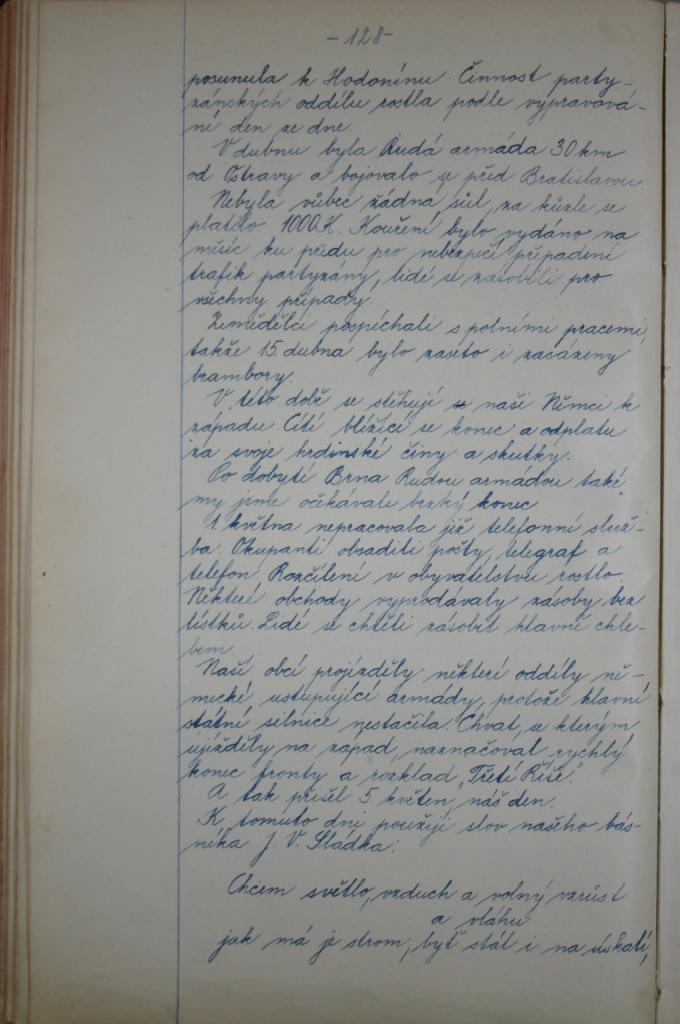 - 128 -
posunula k Hodonínu. Činnost party-
zánských oddílu rostla podle vypravová-
ní den ze dne.
V dubnu byla Rudá armáda 30 km
od Ostravy a bojovalo se před Bratislavou.
Nebyla vůbec žádná sůl, za kůzle se
platilo 1000 K. Kouření bylo vydáno na
měsíc ku předu pro nebezpečí připadení
trafik partyzány, lidé se zasobili pro
všechny případy.
Zemědělci pospíchali s polními pracemi,
takže 15. dubna bylo zaseto i zasázeny
brambory.
V této době se stěhují naši Němci k
západu. Cítí blížící se konec a odplatu
za svoje hrdinské činy a skutky.
Po dobytí Brna Rudou armádou také
my jsme očekávali brzký konec.
1. května nepracovala již telefonní služ-
ba. Okupanti obsadili pošty, telegraf a
telefon. Rozčílení v obyvatelstvu rostlo.
Některé obchody vyprodávaly zásoby bez
lístků. Lidé se chtěli zásobit hlavně chle-
bem.
Naší obcí projížděly některé oddíly ně-
mecké ustupující armády, protože hlavní
státní silnice nestačila. Chvat, se kterým
ujížděly na západ, naznačoval rychlý
konec fronty a rozklad „Třetí Říše".
A tak přišel 5. květen, náš den.
K tomuto dni použiji slov našeho bás-
níka J. V. Sládka:
Chcem světlo, vzduch a volný vzrůst
a vláhu
jak má je strom, byť stál i na úskalí,